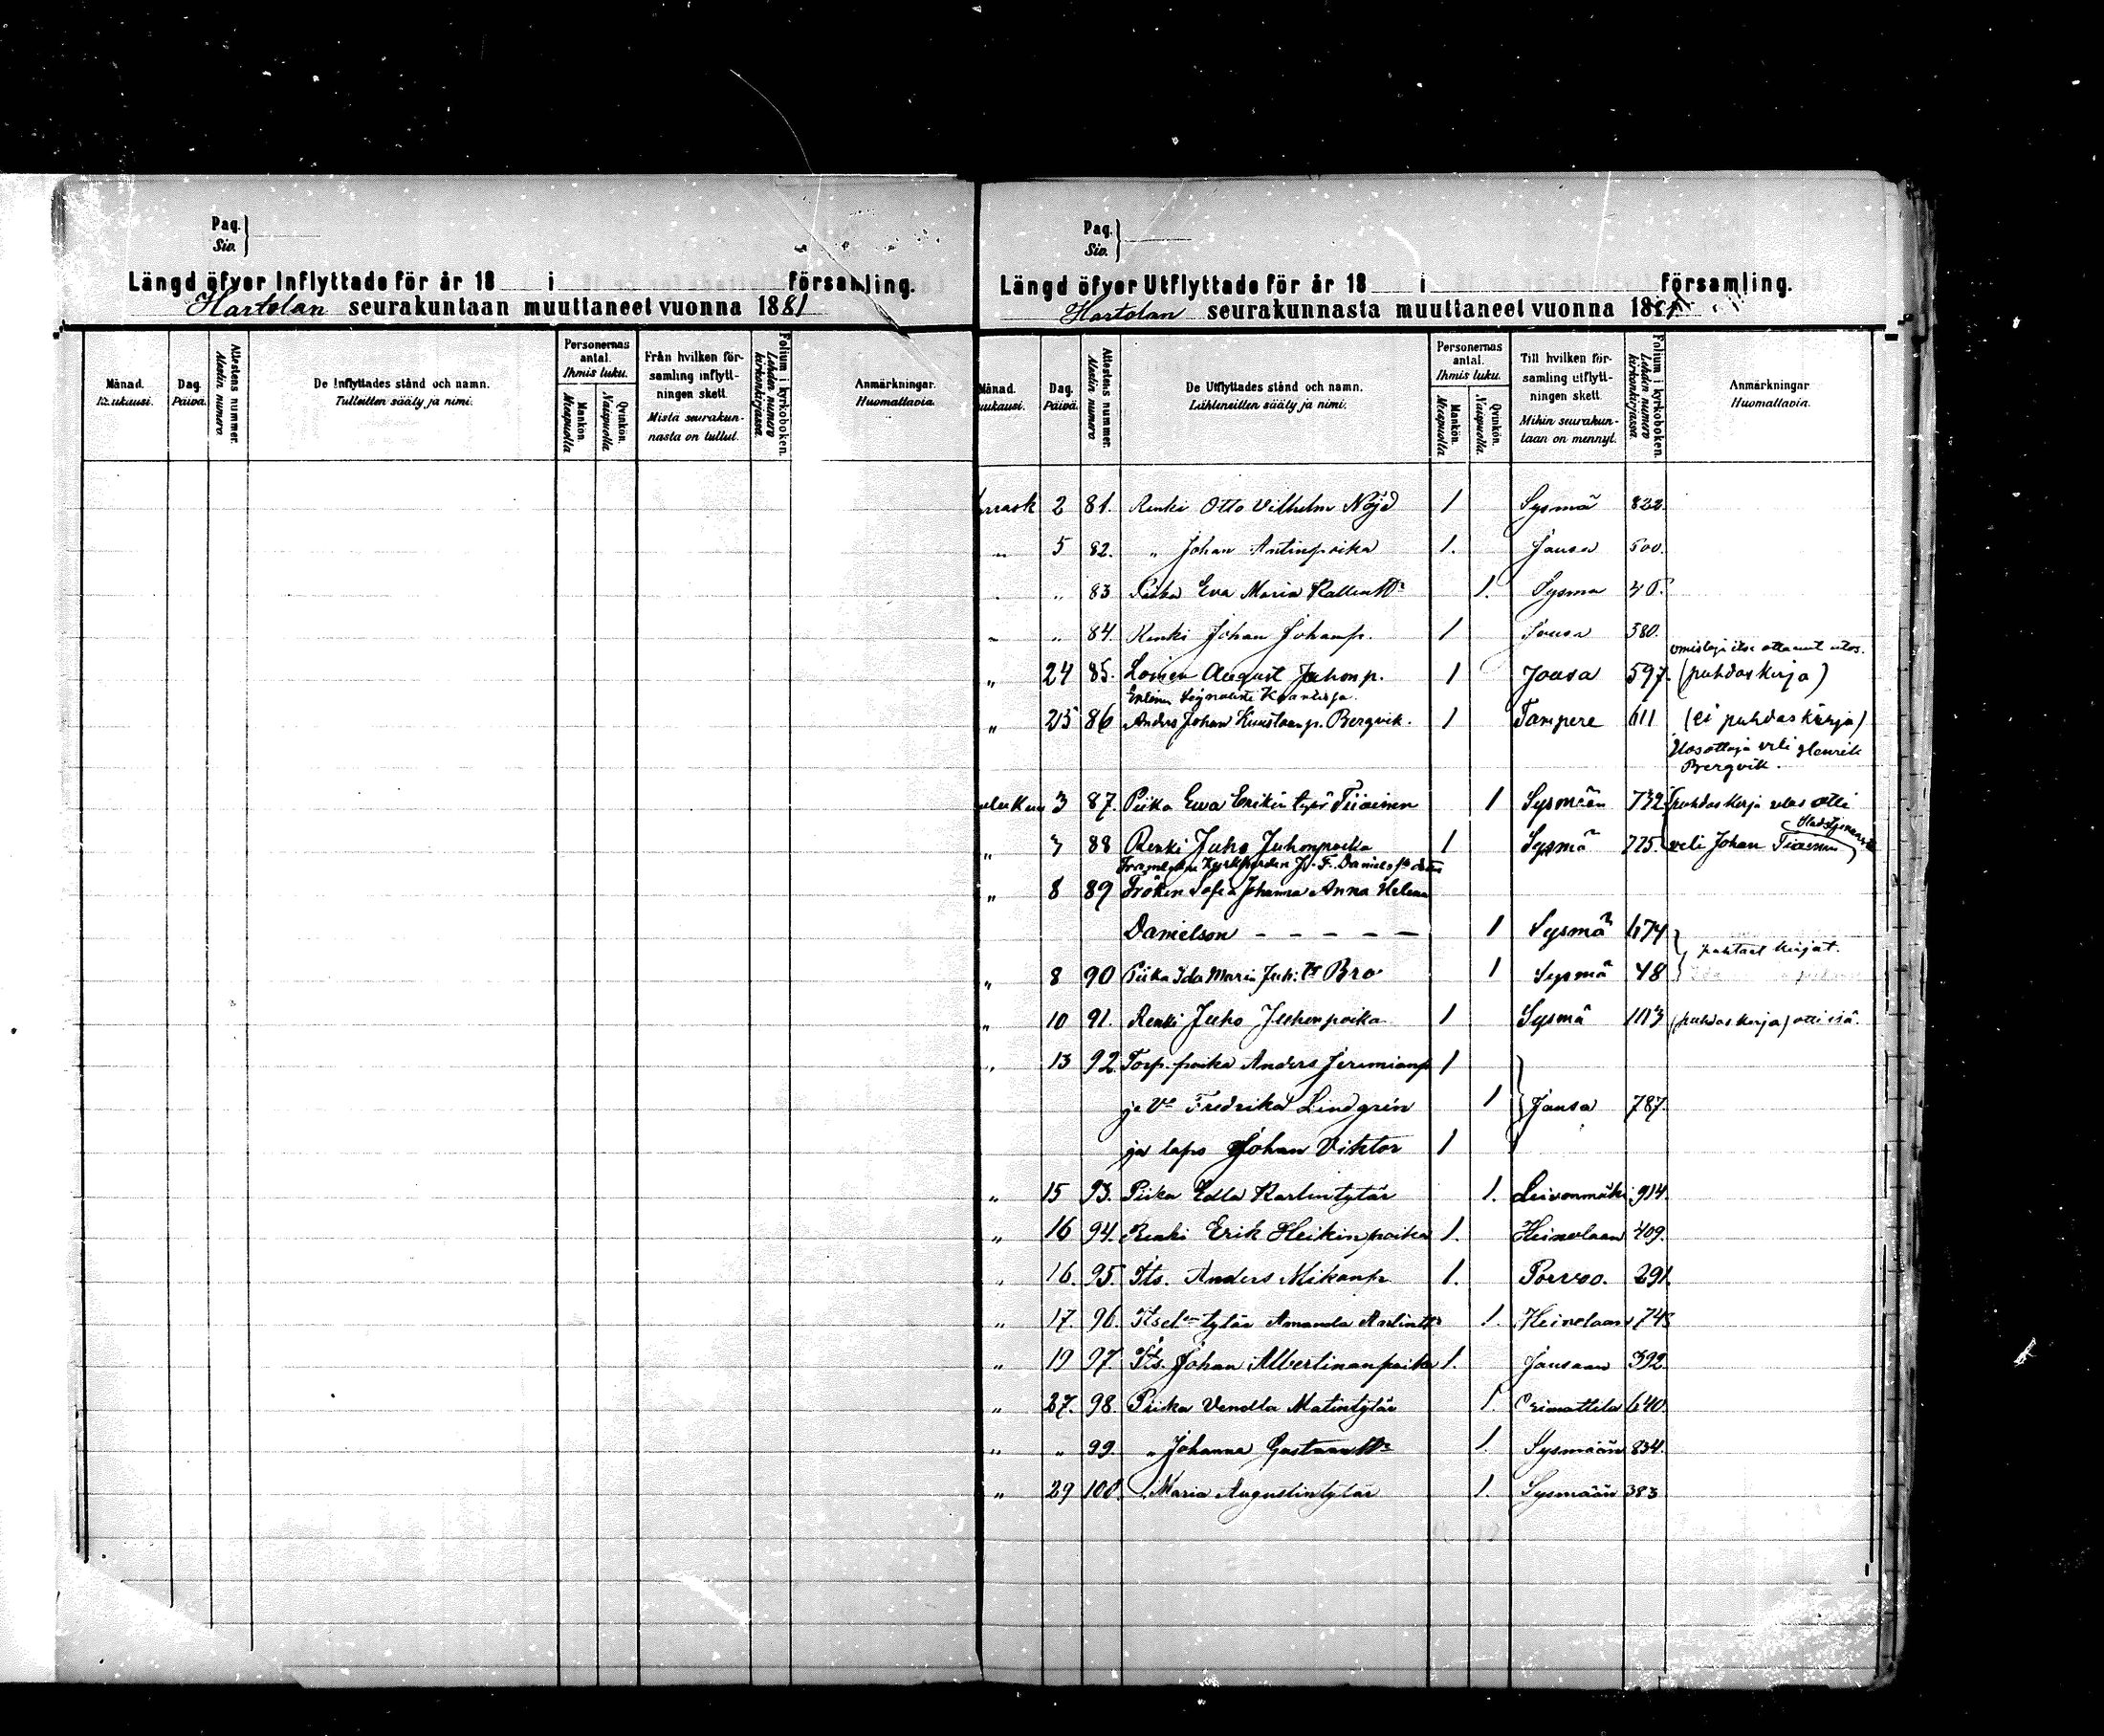 Pag.
Siv.
Längd öfver Inflyttade för år 18 i församling.
Hartolan seurakuntaan muuttaneet vuonna 1881
Månad. Kuukausi.
Dag. Päivä.
Attestens nummer. Atestin numero.
De Inflyttades stånd och namn. Tulleitten sääty ja nimi.
Personernas antal. Ihmis luku.
Mankön. Miespuolia
Qvinkön. Naispuolia
Från hvilken församling inflyttningen skett. Mistä seurakunnasta on tullut.
Folium i kyrkoboken. Lehden numero kirkonkirjassa.
Anmärkningar. Huomattavia.
Pag.
Siv.
Längd öfver Utflyttade för år 18 i församling.
Hartolan seurakunnasta muuttaneet vuonna 1881
Månad. Kuukausi.
Dag. Päivä.
Attestens nummer. Atestin numero.
De Utflyttades stånd och namn. Lähteneitten sääty ja nimi.
Personernas antal. Ihmis luku.
Mankön. Miespuolia
Qvinkön. Naispuolia
Till hvilken församling utflyttningen skett. Mihin seurakuntaan on mennyt.
Folium i kyrkoboken. Lehden numero kirkonkirjassa.
Anmärkningar Huomattavia.
rrask 2 81. Renki Otto Vilhelm Nöjd 1 Sysmä 822
" 5 82. " Johan Antinpoika 1. Jousa 500.
" 83 Piika Eva Maria Kallentr 1. Sysmä
" " 84. Renki Johan Johanp. 1 Jousa 580.
omistaja itse ottanut ulos.
" 24 85. Loinen August Juhonp. 1 Jousa 597. (puhdas kirja)
" 25 86 Anders Johan Kustaanp. Bergvik. 1 Tampere 611 (ei puhdas kirja)
Ulosottaja veli Henrik
Bergvik.
3 87. Piika Ewa Erikin tytär Tiiainen 1 Sysmään 732 (puhdas kirja ulos otti
" 7 88 Renki Juho Juhonpoika 1 Sysmä 725. veli Johan Tiiainen
" 8 89 Fröken Sofia Johanna Anna Helena
Danielson - - - - - 1 Sysmä 674
puhtaat kirjat.
" 8 90 Piika Ida Maria Juh: tr Bro 1 Sysmä 48
" 10 91. Renki Juho Juhonpoika 1 Sysmä 1113 (puhdas kirja) otti isä.
" 13 92. Torp. poika Anders Jeremianp 1
ja Vo Fredrika Lindgrén 1 Jousa 787.
ja laps Johan Viktor 1
" 15 93. Piika Edla Karlintytär 1. Leivonmäki 914.
" 16 94. Renki Erik Heikinpoika 1. Heinolaan 409.
" 16. 95. Its. Anders Mikanp. 1. Porvoo. 291.
" 17. 96. Itsel:en tytär Amanda Antintr 1. Heinolaan 748
" 19 97. Its. Johan Albertinanpoika 1. Jousaan 392.
" 27. 98. Piika Vendla Matintytär 1. Orimattila 640.
" " 99. " Johanna Gustaantr 1. Sysmään 834.
" 29 100. " Maria Augustintytär 1. Sysmään 383